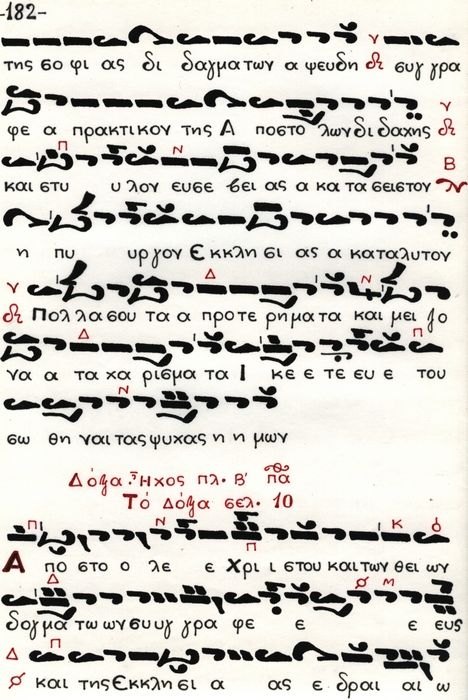 -182-
της σο φι ας δι δαγματων α ψευδη συγ γρα
φε α πρακτικον της Α ποστο λων δι δαχης
και στυ υ λον ευσε βει ας α κα τα σειστον
η πυ υργον Εκκλη σι ας α καταλυτον
Πολλα σου τα α προτε ρηματα και μει ζο
να α τα χα ρισμα τα Ι κε ε τε ευ ε του
σω θη ναι τας ψυχας η η μων
Δόξα Ἦχος πλ. Β' πα
Τό Δόξα σελ. 10
Α πο στο ο λε ε Χρι ι στου και των θει ων
δογμα τω ων συυγ γρα φε ε ε ευς
και της Εκκλη σι α ας ε δραι αι ω